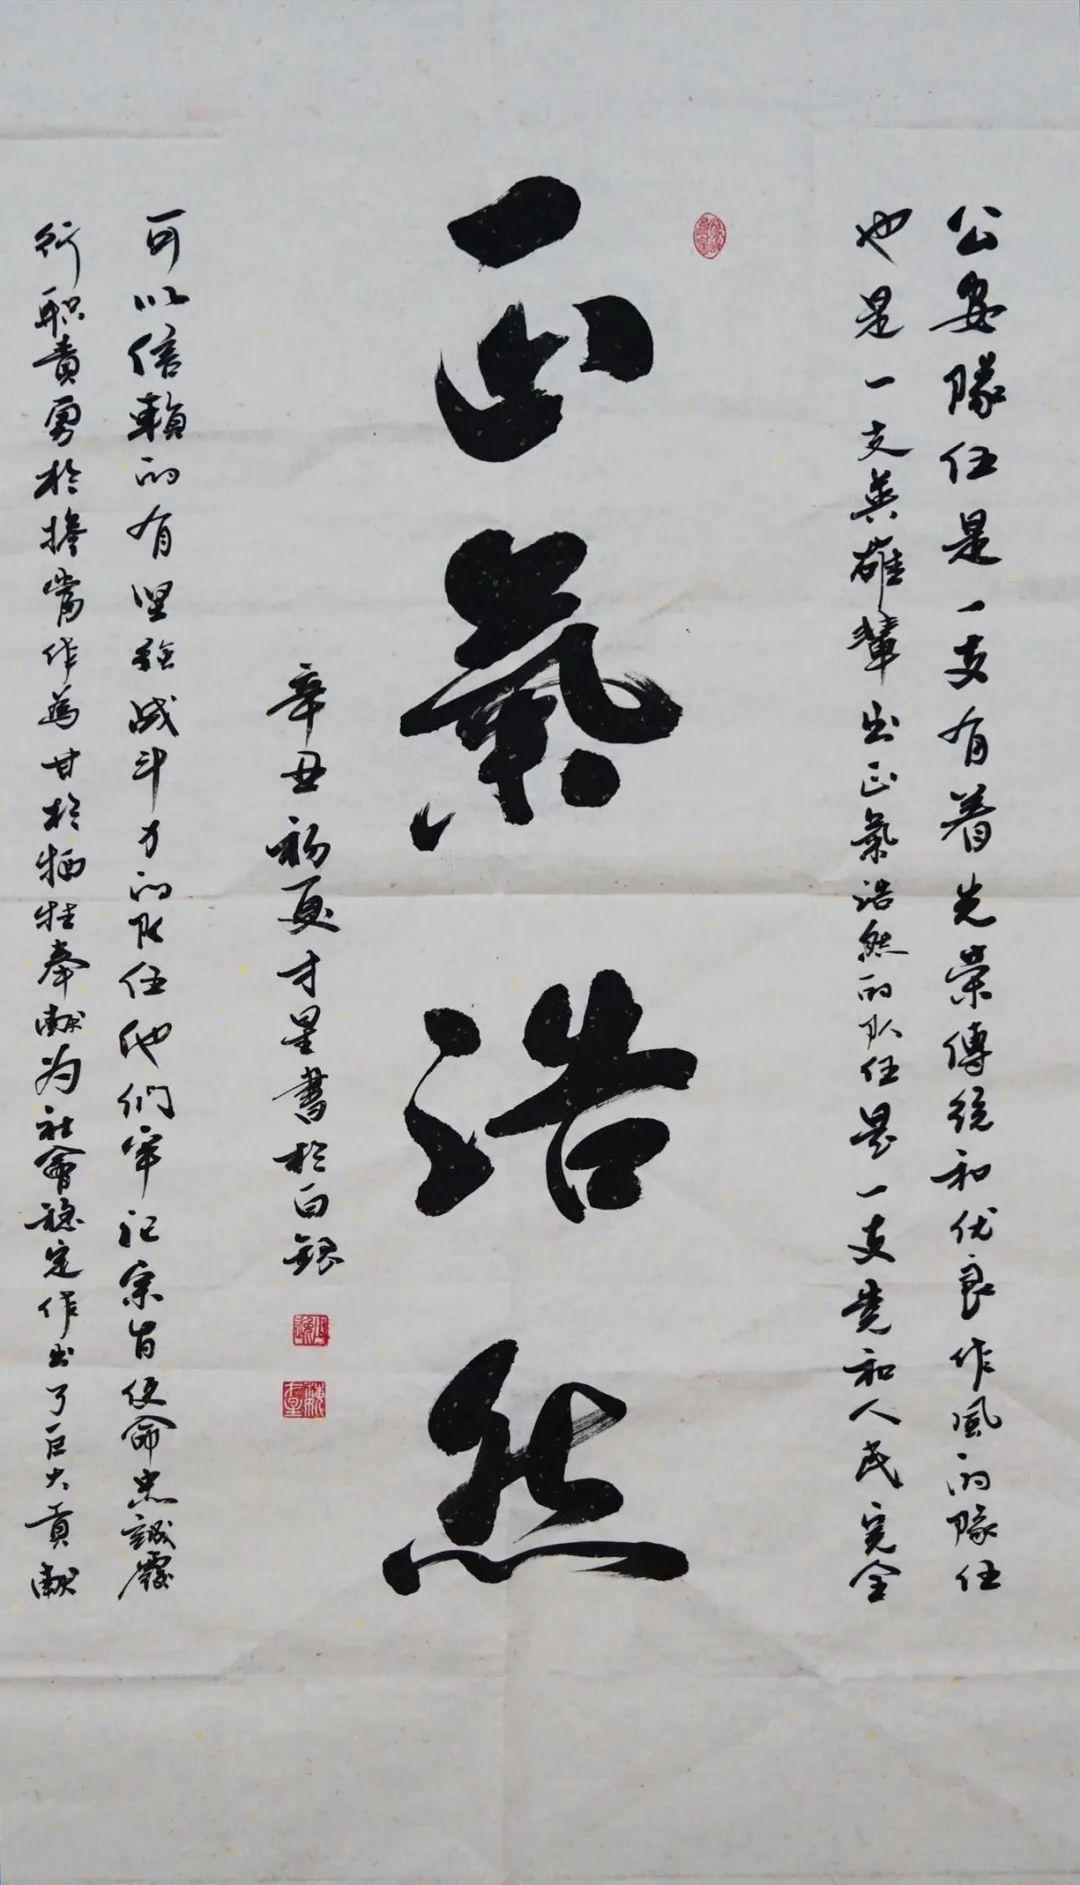 公安隊伍是一支有着光荣傳统和优良作風的隊伍
也是一支英雄輩出正氣浩然的队伍是一支党和人民完全
正氣浩然
辛丑初夏才星書於白銀
可以信賴的有坚强战斗力的队伍他们牢记宗旨使命忠誠履
行职責勇於擔當作為甘於牺牲奉献为社會穩定作出了巨大貢献